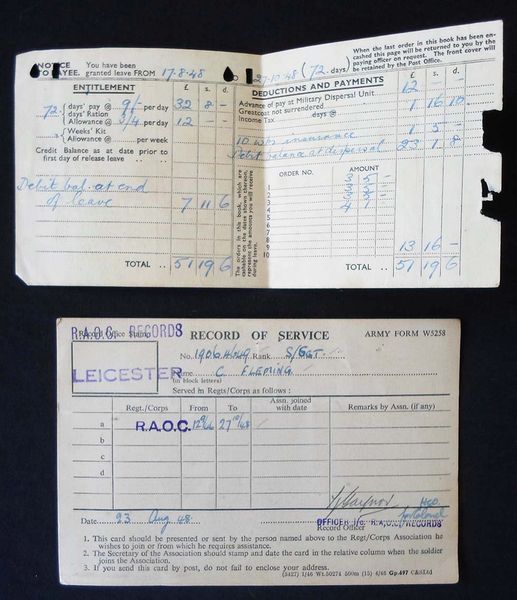 NOTICE You have been
TO PAYEE. granted leave FROM 17-8-48 TO 27-10-48 (72 days)
When the last order in this book has been en-
cashed this page will be returned to you by the
paying officer on request. The front cover will
be retained by the Post Office.
ENTITLEMENT £ s. d.
72 days' pay @ 9/- per day 32 8 -
days' Ration
Allowance @ 3/4 per day 12 - -
Weeks' Kit
Allowance @ per week
Credit Balance as at date prior to
first day of release leave
Debit bal. at end
of leave 7 11 6
TOTAL .. 51 19 6
The orders in this book, which are
cashable on the dates shown thereon,
represent the amounts you will receive
during leave.
DEDUCTIONS AND PAYMENTS £ s. d.
Advance of pay at Military Dispersal Unit 12 - -
Greatcoat not surrendered 1 16 10
Income Tax
10 wks insurance 1 5 -
Debit balance at dispersal 23 1 8
ORDER NO. AMOUNT
1
2
3
4
5
6
7
8
9
10
13 16 -
TOTAL .. 51 19 6
R.A.O.C. RECORDS
Record Office Stamp
LEICESTER
RECORD OF SERVICE ARMY FORM W5258
No. Rank S/SGT.
Name C FLEMING
(in block letters)
Served in Regts/Corps as follows :
Regt./Corps From To Assn. joined with date Remarks by Assn. (if any)
a R.A.O.C. 27 10/48
b
c
d
Date 23 Aug 48.
OFFICER I/C. R.A.O.C. RECORDS
Record Officer
1. This card should be presented or sent by the person named above to the Regt/Corps Association he
wishes to join or from which he requires assistance.
2. The Secretary of the Association should stamp and date the card in the relative column when the soldier
joins the Association.
3. If you send this card by post, do not fail to enclose your address.
(5427) 1/46 Wt.50274 500m (15) 4/46 Gp.697 C&SLtd